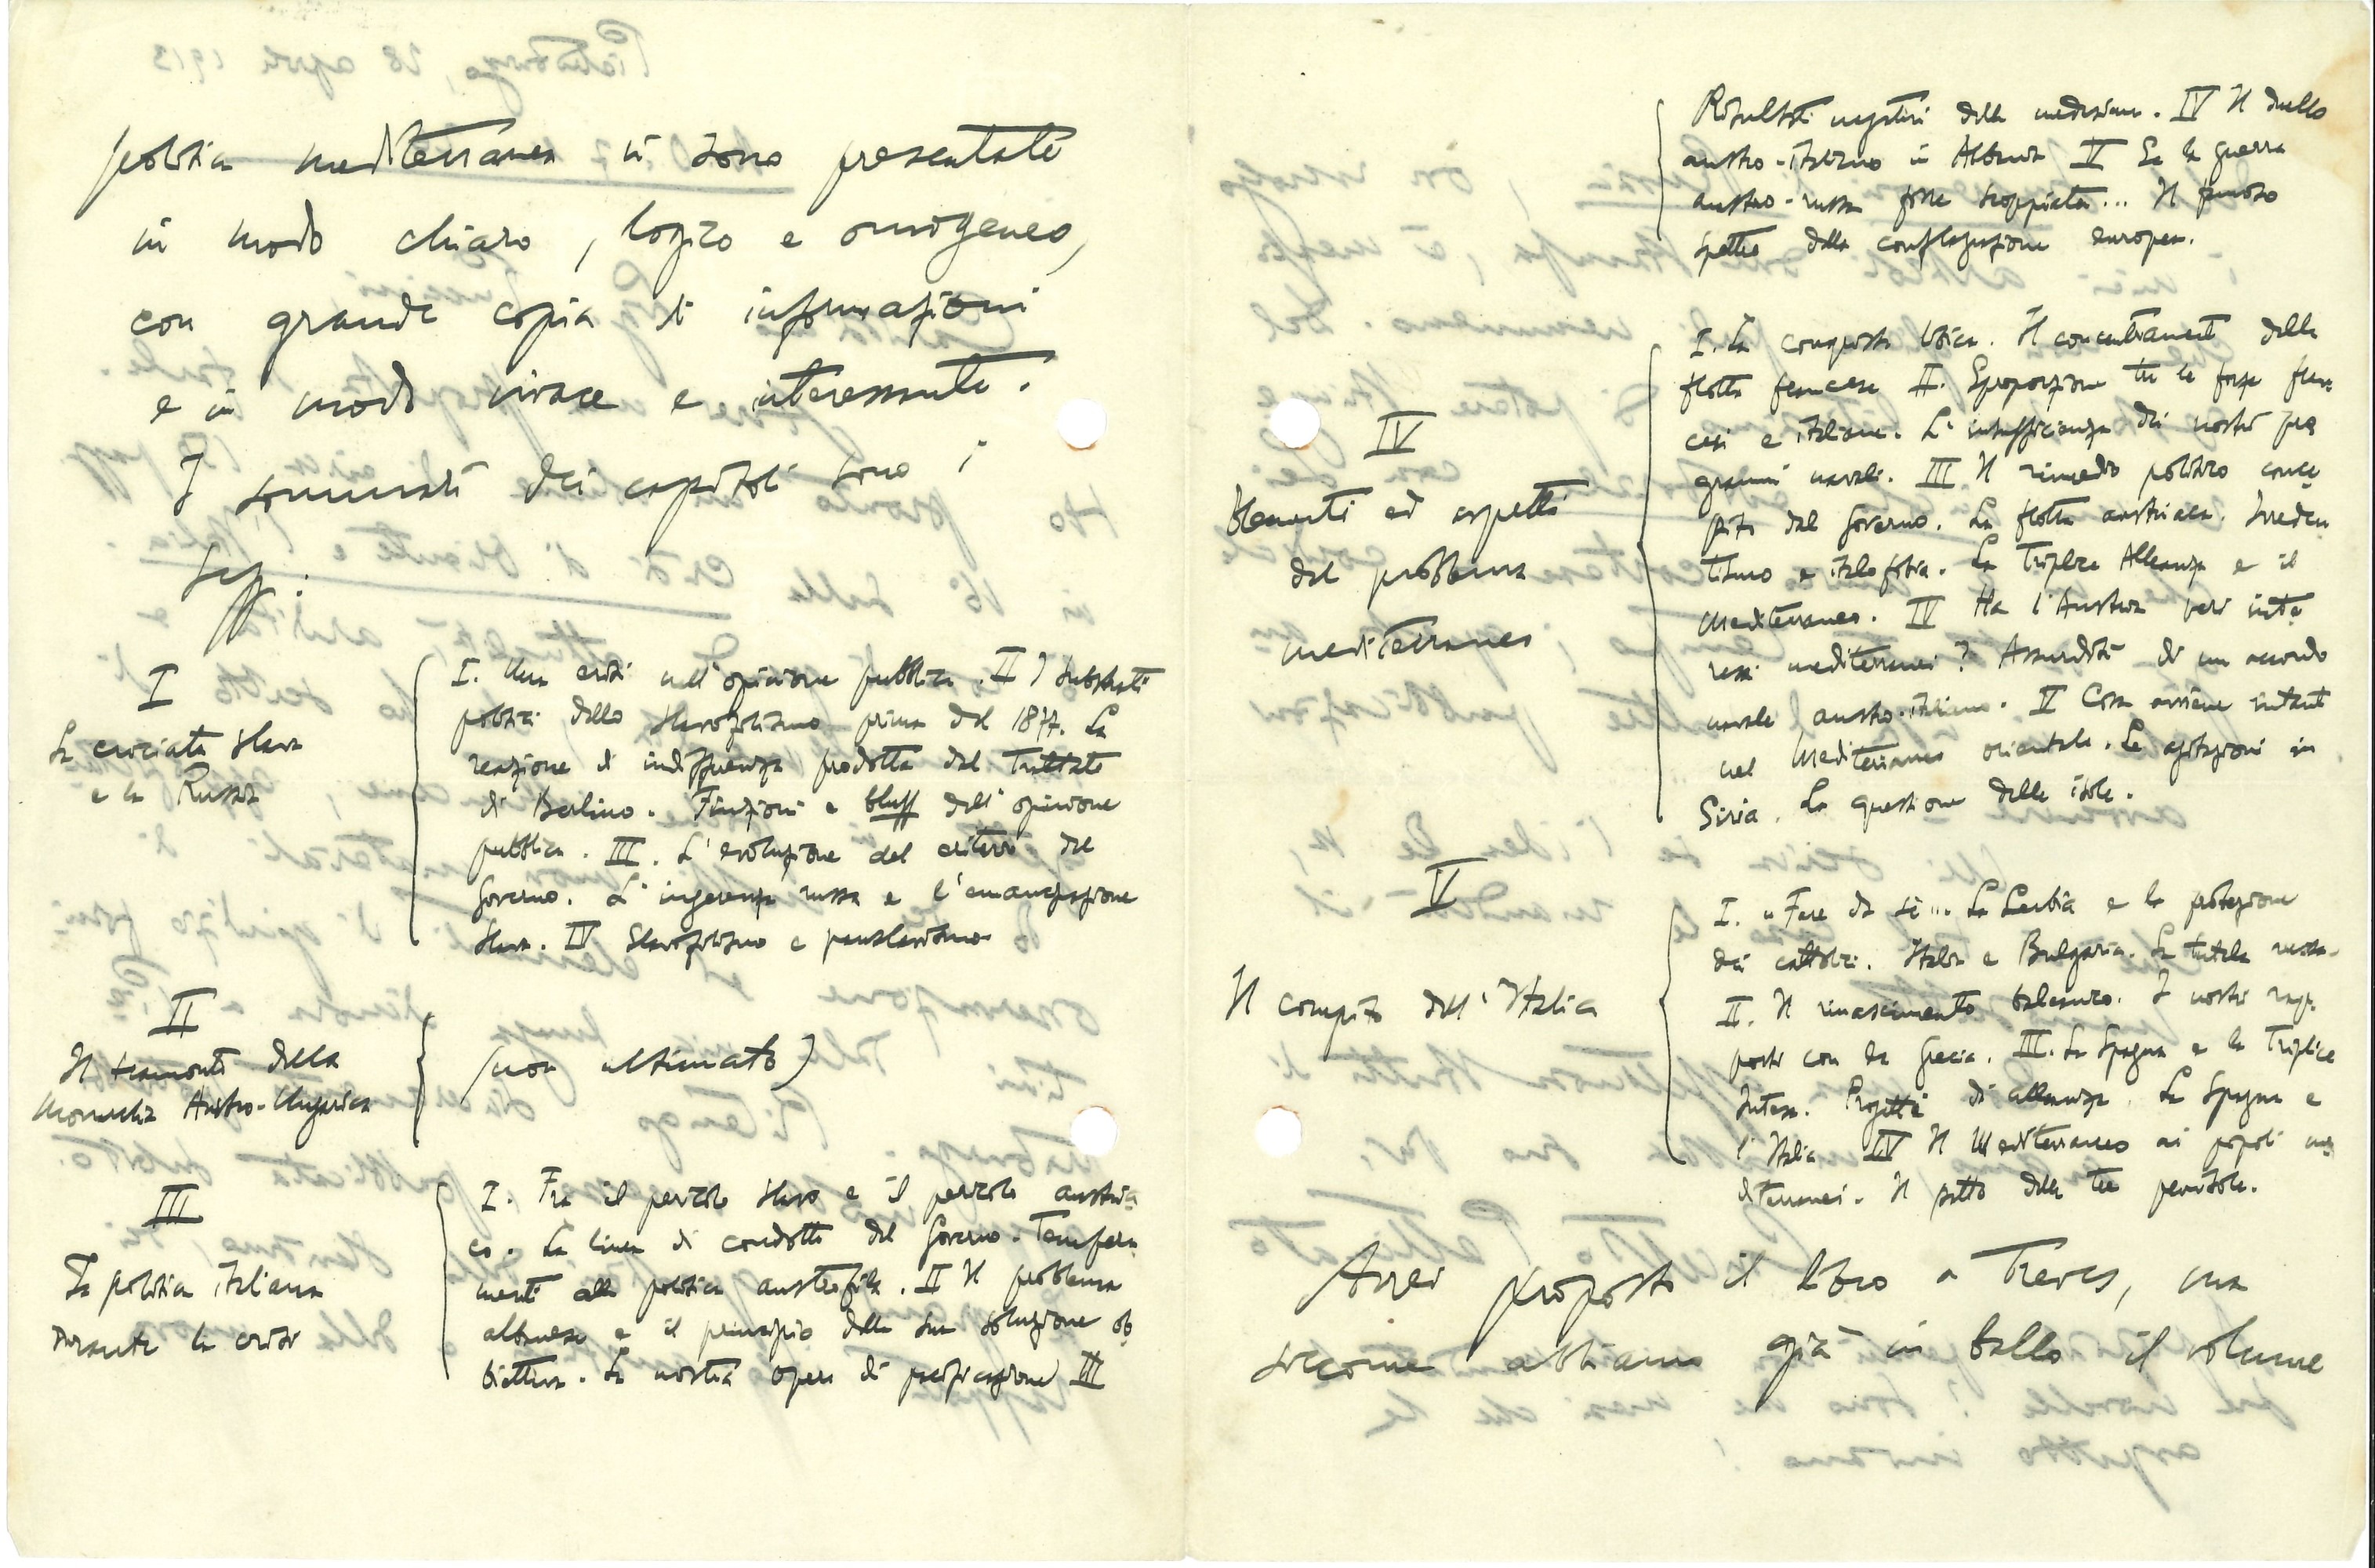 politica mediterranea vi sono presentate
in modo chiaro, logico e omogeneo,
con grande copia di informazioni
e in modo vivace e interessante.
I sommari dei capitoli sono i
segg:
I
La crociata slava
e la Russia
I. Una crisi nell'opinione pubblica. II I substrati
politici dello slavofilismo prima del 1877. La
reazione di indifferenza prodotta dal Trattato
di Berlino. Finzioni e bluff dell'opinione
pubblica. III. L'evoluzione del criterio del
Governo. L'ingerenza russa e l'emancipazione
slava. IV Slavofilismo e panslavismo
II
Il tramonto della
Monarchia Austro-Ungarica
(non ultimato)
III
La politica italiana
durante la crisi
I. Fra il pericolo slavo e il pericolo austria
co. La linea di condotta del Governo. Tempera
menti alla politica austrofila. II Il problema
albanese e il principio della sua soluzione ob
biettiva. La nostra opera di pacificazione III
Risultati negativi della mediazione. IV Il duello
austro-italiano in Albania V Se la guerra
austro-russa fosse scoppiata... Il pauroso
spettro della conflagrazione europea.
IV
Elementi ed aspetti
del problema
mediterraneo
I. La conquista libica. Il concentramento della
flotta francese II. Sproporzione tra le forze fran
cesi e italiane. L'insufficienza dei nostri pro
grammi navali. III Il rimedio politico conce
pito dal Governo. La flotta austriaca. Irreden
tismo e italofobia. La Triplice Alleanza e il
Mediterraneo. IV Ha l'Austria veri inte
ressi mediterranei? Assurdità di un accordo
navale austro-italiano. V Cosa avviene intanto
nel Mediterraneo orientale. Le agitazioni in
Siria. La questione delle isole.
V
Il compito dell'Italia
I. "Fare da sè". La Serbia e la protezione
dei cattolici. Italia e Bulgaria. La tutela russa.
II. Il rinascimento balcanico. I nostri rap
porti con la Grecia. III. La Spagna e la Triplice
Intesa. Progetti di alleanza. La Spagna e
l'Italia IV Il Mediterraneo ai popoli me
diterranei. Il patto delle tre penisole.
Avrei proposto il libro a Treves, ma
siccome abbiamo già in ballo il volume